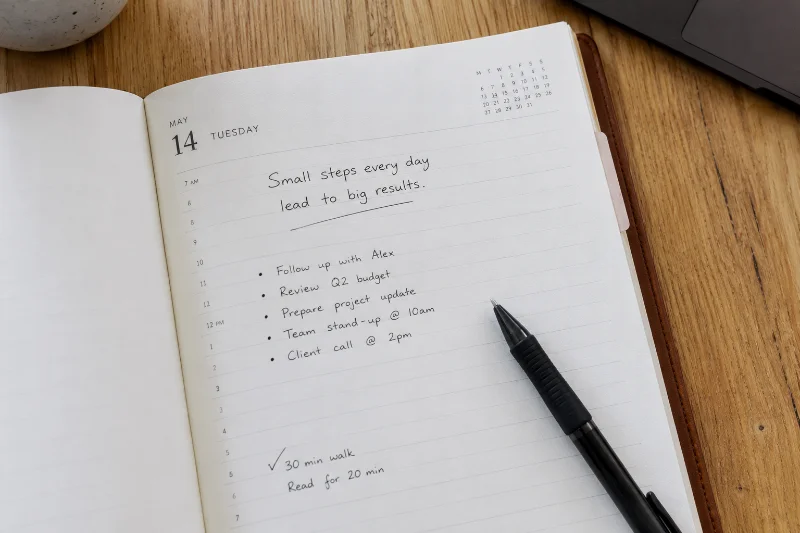 MAY
14 TUESDAY
M T W T F S S
Small steps every day
lead to big results.
7 AM
8
8
9
10
11
12
12 PM
1
2
3
2
4
5
6
6
7
• Follow up with Alex
• Review Q2 budget
• Prepare project update
• Team stand-up @ 10am
• Client call @ 2pm
✓ 30 min walk
Read for 20 min